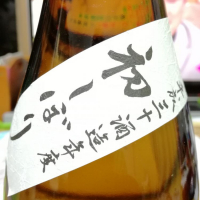 平成二十酒造年度
初しぼり